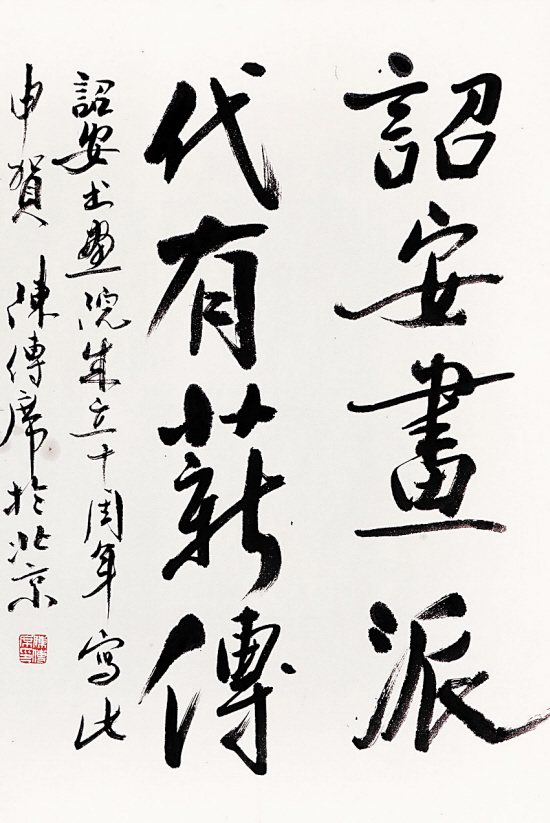 詔安畫派
代有薪傳
詔安书畫院成立十周年寫此
申賀 陳傳席於北京